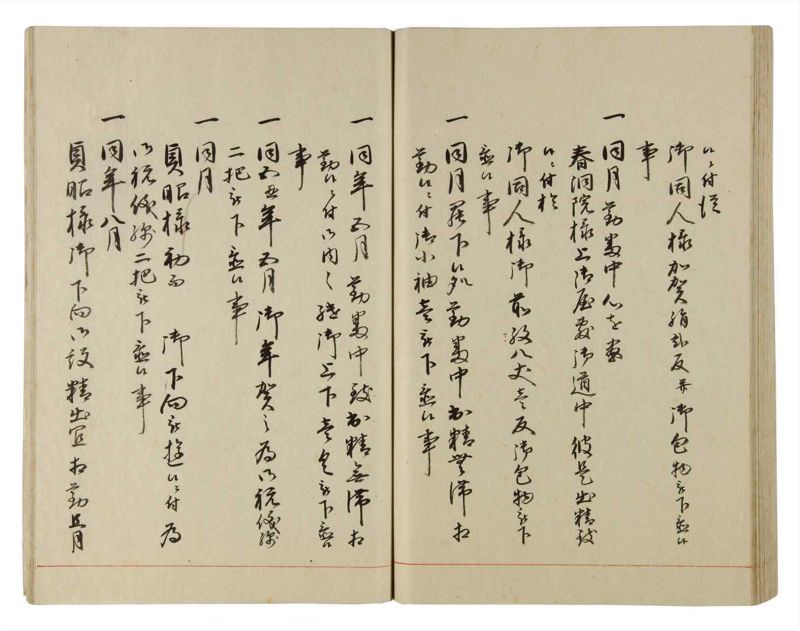 付
御同人様加賀絹弐反并御包物被下置候
事
一同月勤番中心を尽
春洞院様上御屋敷御道中彼是出精致
候ニ付於
御同人様御前紋八丈壱反御包物被下
置候事
一同月罷下候処勤番中出精無滞相
勤候ニ付御小袖壱被下置候事
一同年五月勤番中致出精無滞相
勤候ニ付御内々御上下壱具被下置候
事
一同五年五月御年賀之為御祝儀綿
二把被下置候事
一同月
貞昭様初而御下向被遊候ニ付為
御祝儀綿二把被下置候事
一同年八月
貞昭様御下向御設精出宜相勤